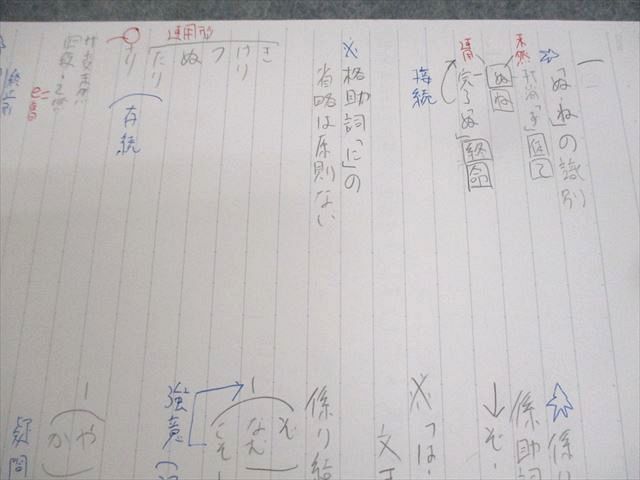 「ぬ」「ね」の識別
未然
打消「ず」体已
ぬ
ね
連用
完了「ぬ」終命
接続
※格助詞「に」の
省略は原則ない
連用形
き
けり
つ
ぬ
たり
り
存続
サ変未然
四段・已然
e音
終止形
☆係り
係助詞
↓ぞ・
※「は・
文末
係り結
ぞ
なむ
こそ
強意
や
か
疑問